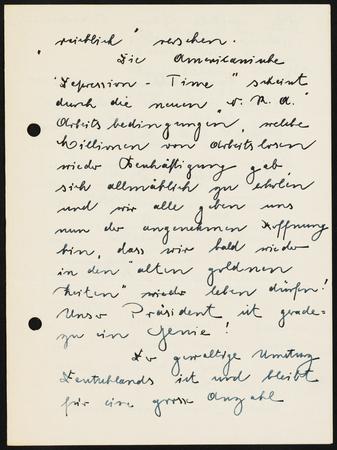 "reichlich" versehen.
Die Amerikanische
"Depression - Time" scheint
durch die neuen "N. R. A."
Arbeitsbedingungen, welche
Millionen von Arbeitslosen
wieder Beschäftigung gab
sich allmählich zu erholen
und wir alle geben uns
nun der angenehmen Hoffnung
hin, dass wir bald wieder
in den "alten goldnen
Zeiten" wieder leben dürfen!
Unser Präsident ist gerade-
zu ein Genie!
Der gewaltige Umsturz
Deutschlands ist und bleibt
für eine grosse Anzahl